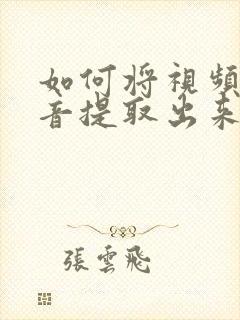 如何将視頻
音提取出来
張雲飛